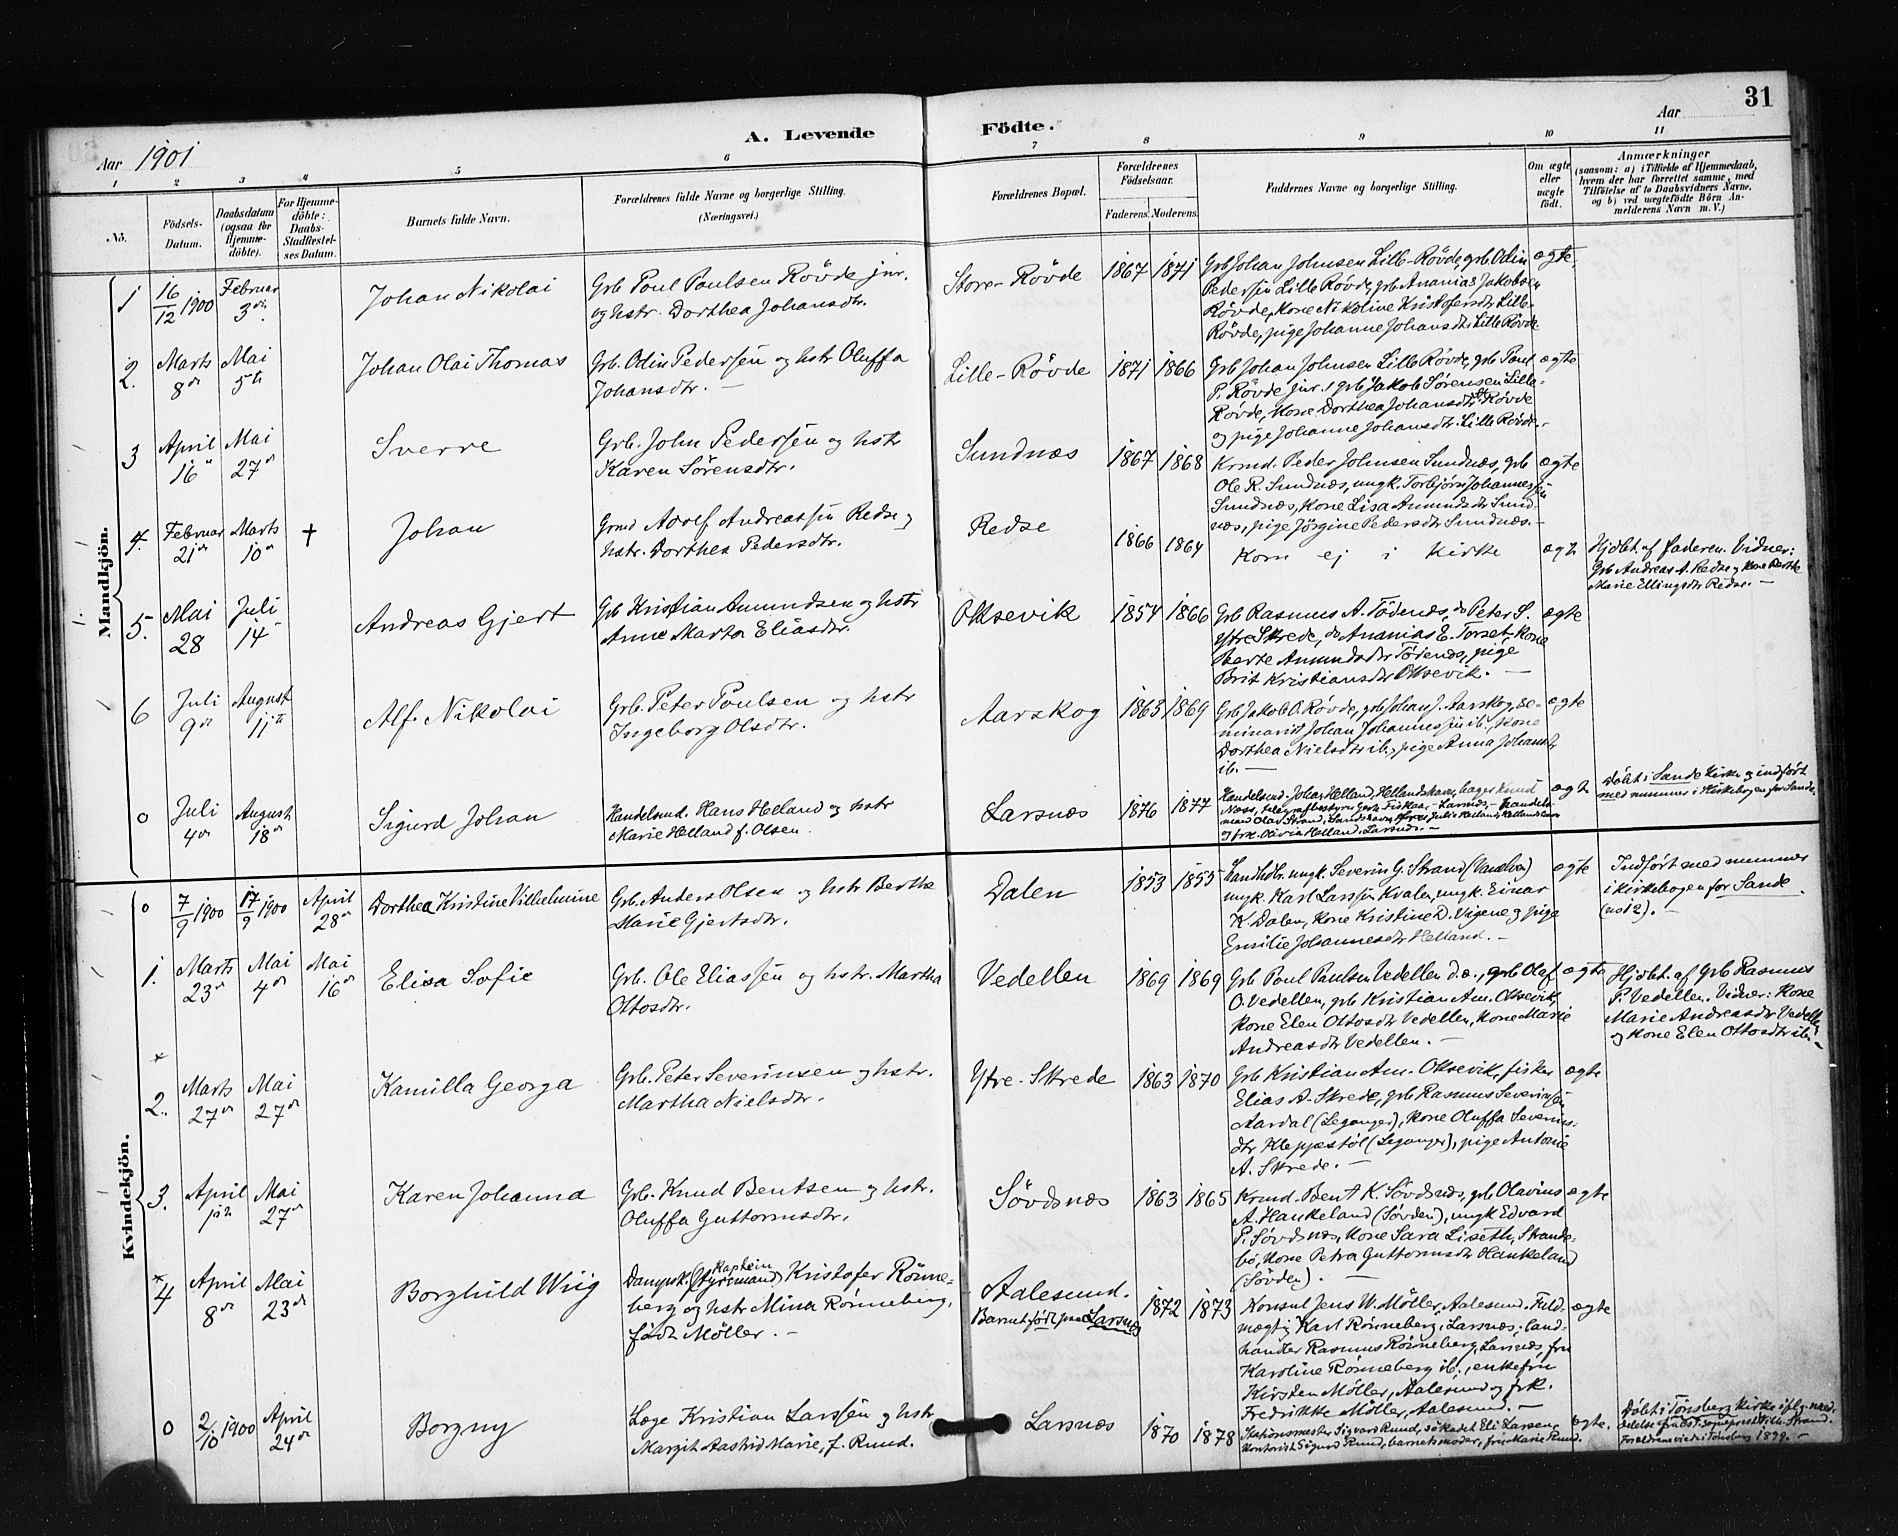 31
A. Levende Födte.
Aar 1901
Aar
1 2 3 4 5 6 7 8 9 10 11
No.
Födsels-
Datum.
Daabsdatum
(ogsaa for
Hjemme-
döbte).
For Hjemme-
döbte:
Daabs-
Stadfæstel-
ses Datum.
Barnets fulde Navn.
Forældrenes fulde Navne og borgerlige Stilling.
(Næringsvei.)
Forældrenes Bopæl.
Forældrenes
Födselsaar.
Faderens. Moderens.
Faddernes Navne og borgerlige Stilling.
Om ægte
eller
uægte
födt.
Anmærkninger
(saasom: a) i Tilfælde af Hjemmedaab,
hvem der har forrettet samme, med
Tilföielse af to Daabsvidners Navne,
og b) ved uægtefödte Börn An-
melderens Navn m. V.)
Mandkjön.
1
16/12 1900
Februar
3die
Johan Nikolai
Grb. Poul Poulsen Rövde jnr.
og hstr. Dorthea Johansdtr.
Store-Rövde
1867 1871
Grb Johan Johnsen Lille-Rövde, grb Odin
Pedersen Lille Rövde, grb Ananias Jakobsen
Rövde, kone Nikoline Kristofersdtr Lille-
Rövde, pige Johanne Johansdtr. Lille Rövde.
ægte
2.
Marts
8de
Mai
5te
Johan Olai Thomas
Grb. Odin Pedersen og hstr Oluffa
Johansdtr. —
Lille-Rövde
1871 1866
Grb Johan Johnsen Lille Rövde, grb Poul
P. Rövde jnr., grb Jakob Sörensen Lille-
Rövde, kone Dorthea Johansdtr St. Rövde
og pige Johanne Johansdtr. Lille Rövde.
ægte
3
April
16
Mai
27de
Sverre
Grb. John Pedersen og hstr
Karen Sörensdtr.
Sundnæs
1867 1868
Krmd. Peder Johnsen Sundnæs, grb
Ole R. Sundnæs, ungk. Torbjörn Johannessen
Sundnæs, kone Lisa Amundsdtr Sund-
næs, pige Jörgine Pedersdtr Sundnæs. —
ægte
4.
Februar
21de
Marts
10de
+
Johan
Grmd Adolf Andreassen Redse og
hstr. Dorthea Pedersdtr.
Redse
1866 1864
Kom ej i Kirke
ægte
Hjdbt. af faderen. Vidner:
Grb Andreas A. Redse og kone Berthe
Marie Ellingsdtr Redse. —
5.
Mai
28
Juli
14
Andreas Gjert
Grb Kristian Amundsen og hstr
Anne Marta Eliasdtr.
Oksevik
1854 1866
Grb Rasmus A. Tödenæs, do Peter S.
Ytre Skrede, do Ananias E. Torset, kone
Berte Amundsdtr Tödenæs, pige
Brit Kristiansdtr Oksevik. —
ægte
6
Juli
9de
August
11te
Alf Nikolai
Grb. Peter Poulsen og hstr
Ingeborg Olsdtr.
Aarskog
1863 1869
Grb Jakob O. Rövde, grb Johan J. Aarskog, se-
minarist Johan Johannessen ib., kone
Dorthea Nielsdtr ib., pige Anna Johansdtr
ib. —
ægte
0
Juli
4de
August
18de
Sigurd Johan
Handelsmd. Hans Helland og hstr
Marie Helland f. Olsen.
Larsnæs
1876 1877
Handelsmd. Johan Helland, Hellandshavn,
Næss, telegrafbestyrer Fiskaa, Larsnæs, handels-
mand Olav Strand,
og frk. Olivia Helland, Larsnæs. —
ægte
Döbt i Sande Kirke og indfört
med nummer i Kirkebogen for Sande.
Kvindekjön.
0
7/9 1900
17/9 1900
April
28de
Dorthea Kristine Vilhelmine
Grb. Anders Olsen og hstr Berthe
Marie Gjertsdtr.
Dalen
1853 1855
Landhdlr. ungk. Severin G. Strand (Vanelven)
ungk. Karl Larssen Kvalen, ungk. Einar
K. Dalen, kone Kristine D. Vigene og pige
Emilie Johannesdtr Helland. —
ægte
Indfört med nummer
i kirkebogen for Sande
(no 12). —
1.
Marts
23de
Mai
4de
Mai
16de
Elisa Sofie
Grb. Ole Eliassen og hstr. Martha
Ottosdtr.
Vedellen
1869 1869
Grb Poul Paulsen Vedellen d.æ., grb Olaf
O. Vedellen, grb Kristian Am. Oksevik,
kone Elen Ottosdtr Vedellen, kone Marie
Andreasdtr Vedellen. —
ægte
Hjdbt. af Grb Rasmus
P. Vedellen. Vidner: Kone
Marie Andreasdtr Vedellen
og kone Elen Ottosdtr ib. —
*
2.
Marts
27de
Mai
27de
Kamilla Georga
Grb. Peter Severinsen og hstr.
Martha Nielsdtr.
Ytre-Skrede
1863 1870
Grb Kristian Am. Oksevik, fisker
Elias A. Skrede, grb Rasmus Severinsen
Aardal (Leganger), kone Oluffa Severins-
dtr Kleppestöl (Leganger), pige Antonie
A. Skrede. —
ægte
3.
April
12
Mai
27de
Karen Johanna
Grb. Knud Bentsen og hstr.
Oluffa Guttormsdtr.
Sövdsnæs
1863 1865
Krmd. Bent K. Sövdsnæs, grb Olavius
A. Haukeland (Sövden), ungk Edvard
P. Sövdsnæs, kone Sara Liseth, Strande-
bö, kone Petra Guttormsdtr Haukeland
(Sövden). —
ægte
*
4
April
8de
Mai
23de
Borghild Wiig
kaptein
Dampsk. (styrmand) Kristofer Rönne-
berg og hstr Mina Rönneberg,
födt Möller. —
Aalesund.
Barnet födt paa Larsnæs
1872 1873
Konsul Jens W. Möller, Aalesund. Fuld-
mægtig Karl Rönneberg, Larsnæs, land-
handler Rasmus Rönneberg, Larsnæs, fru
Karoline Rönneberg ib., enkefru
Kirsten Möller, Aalesund og frk.
Fredrikke Möller, Aalesund. —
ægte
0
2/10 1900
April
24de
Borgny
Læge Kristian Larssen og hstr
Margit Aastrid Marie, f. Ruud.
Larsnæs
1870 1878
Stationsmester Sigvard Ruud, sökadet Eli Larsen,
Kontorist Sigurd Ruud, barnets moder, fru Marie Ruud.
ægte.
Döbt i Tönsberg kirke ifölge med-
delelse fra sognepresten Strand.
Forældrene viede i Tönsberg 1899. —